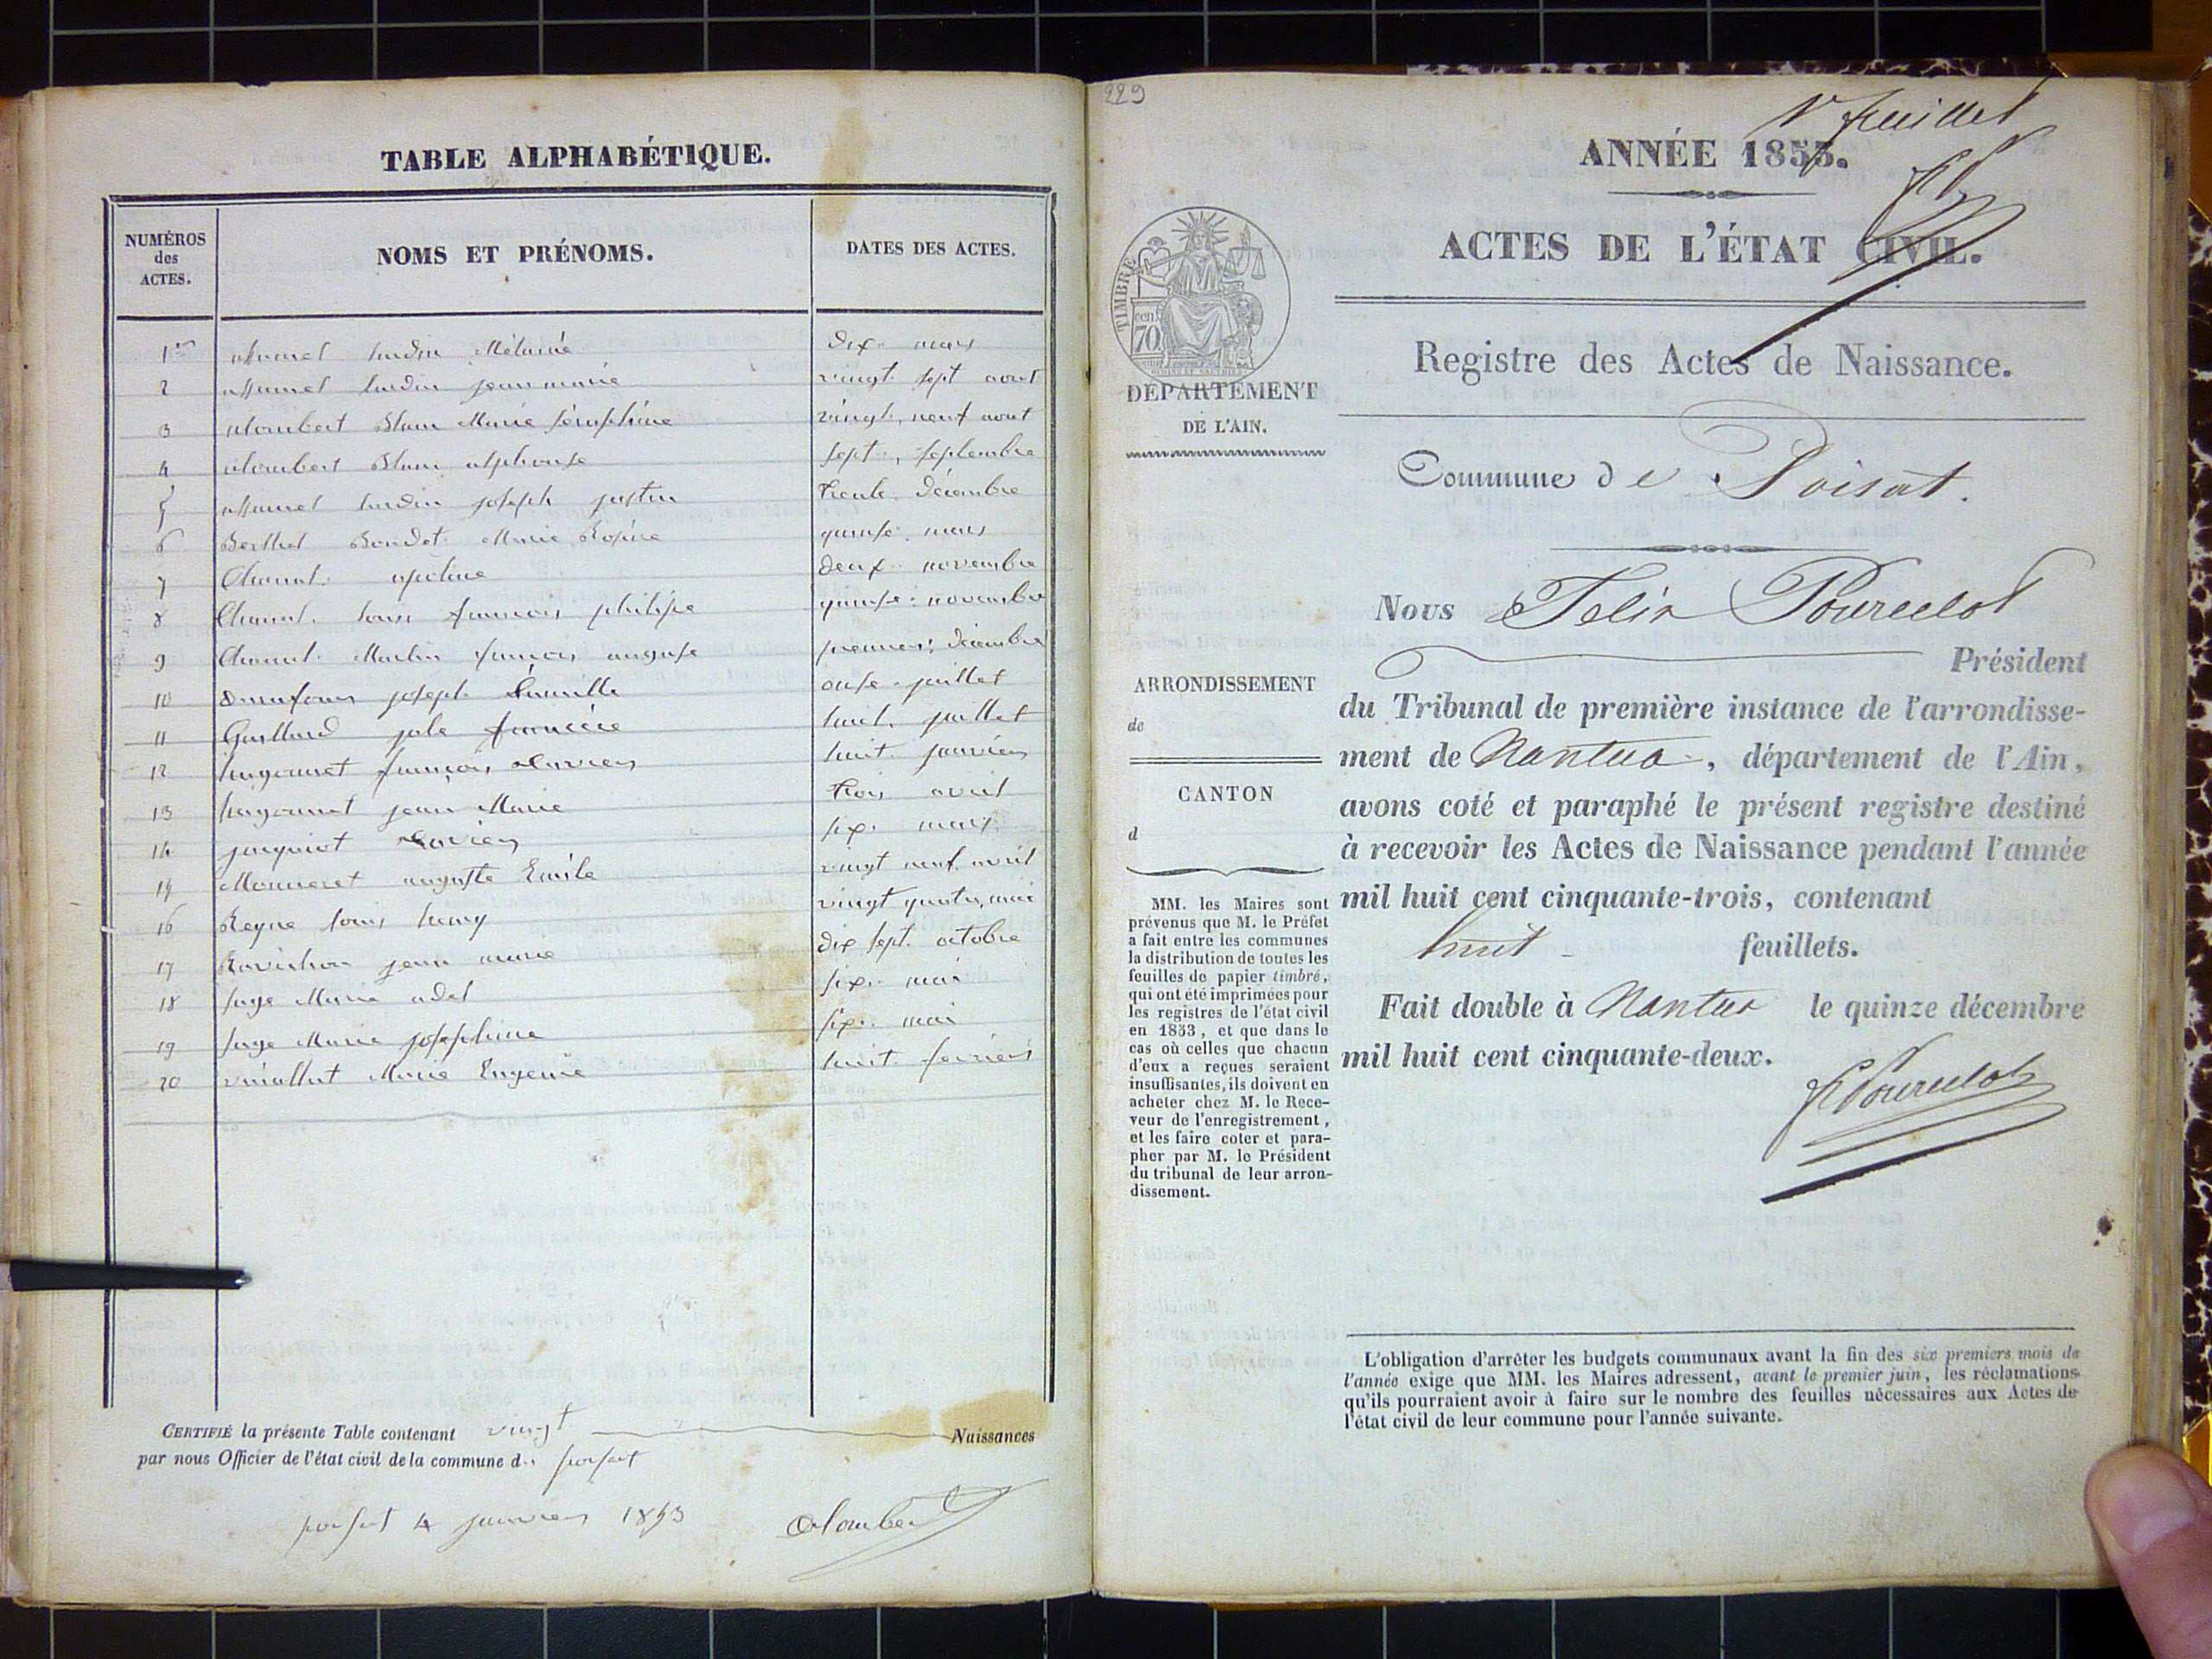 TABLE ALPHABÉTIQUE.
NUMÉROS
des
ACTES.
NOMS ET PRÉNOMS.
DATES DES ACTES.
1er Mélanie dix mars
2 jean marie vingt sept aout
3 alombert Marie Séraphine vingt neuf aout
4 alombert alphonse sept septembre
5 joseph justin trente décembre
6 Berthet Bondet Marie Rosine quinse mars
7 Chanut deux novembre
8 Chanut louis francois philipe quinse novembre
9 Chanut Martin francois premier décembre
10 joseph onse juillet
11 huit juillet
12 francois huit janvier
13 jean Marie trois avril
14 six mars
15 Monneret auguste Emile vingt neuf avril
16 Reyne louis henry vingt quatre mai
17 jean marie dix sept octobre
18 Juge Marie adel six mai
19 Juge Marie josephine six mai
20 Marie Eugenie huit fevrier
CERTIFIÉ la présente Table contenant vingt Naissances
par nous Officier de l'état civil de la commune d
4 janvier 1853 alombert
229
1er feuillet
ANNÉE 1853.
ACTES DE L'ÉTAT CIVIL.
TIMBRE
70 cent
Registre des Actes de Naissance.
DÉPARTEMENT
DE L'AIN.
Commune de Poisat.
Nous Felix Pourcelot
Président
ARRONDISSEMENT
de
CANTON
d
du Tribunal de première instance de l'arrondisse-
ment de Nantua, département de l'Ain,
avons coté et paraphé le présent registre destiné
à recevoir les Actes de Naissance pendant l'année
mil huit cent cinquante-trois, contenant
huit feuillets.
Fait double à Nantua le quinze décembre
mil huit cent cinquante-deux.
Pourcelot
MM. les Maires sont
prévenus que M. le Préfet
a fait entre les communes
la distribution de toutes les
feuilles de papier timbré,
qui ont été imprimées pour
les registres de l'état civil
en 1853, et que dans le
cas où celles que chacun
d'eux a reçues seraient
insuffisantes, ils doivent en
acheter chez M. le Rece-
veur de l'enregistrement,
et les faire coter et para-
pher par M. le Président
du tribunal de leur arron-
dissement.
L'obligation d'arrêter les budgets communaux avant la fin des six premiers mois de
l'année exige que MM. les Maires adressent, avant le premier juin, les réclamations
qu'ils pourraient avoir à faire sur le nombre des feuilles nécessaires aux Actes de
l'état civil de leur commune pour l'année suivante.